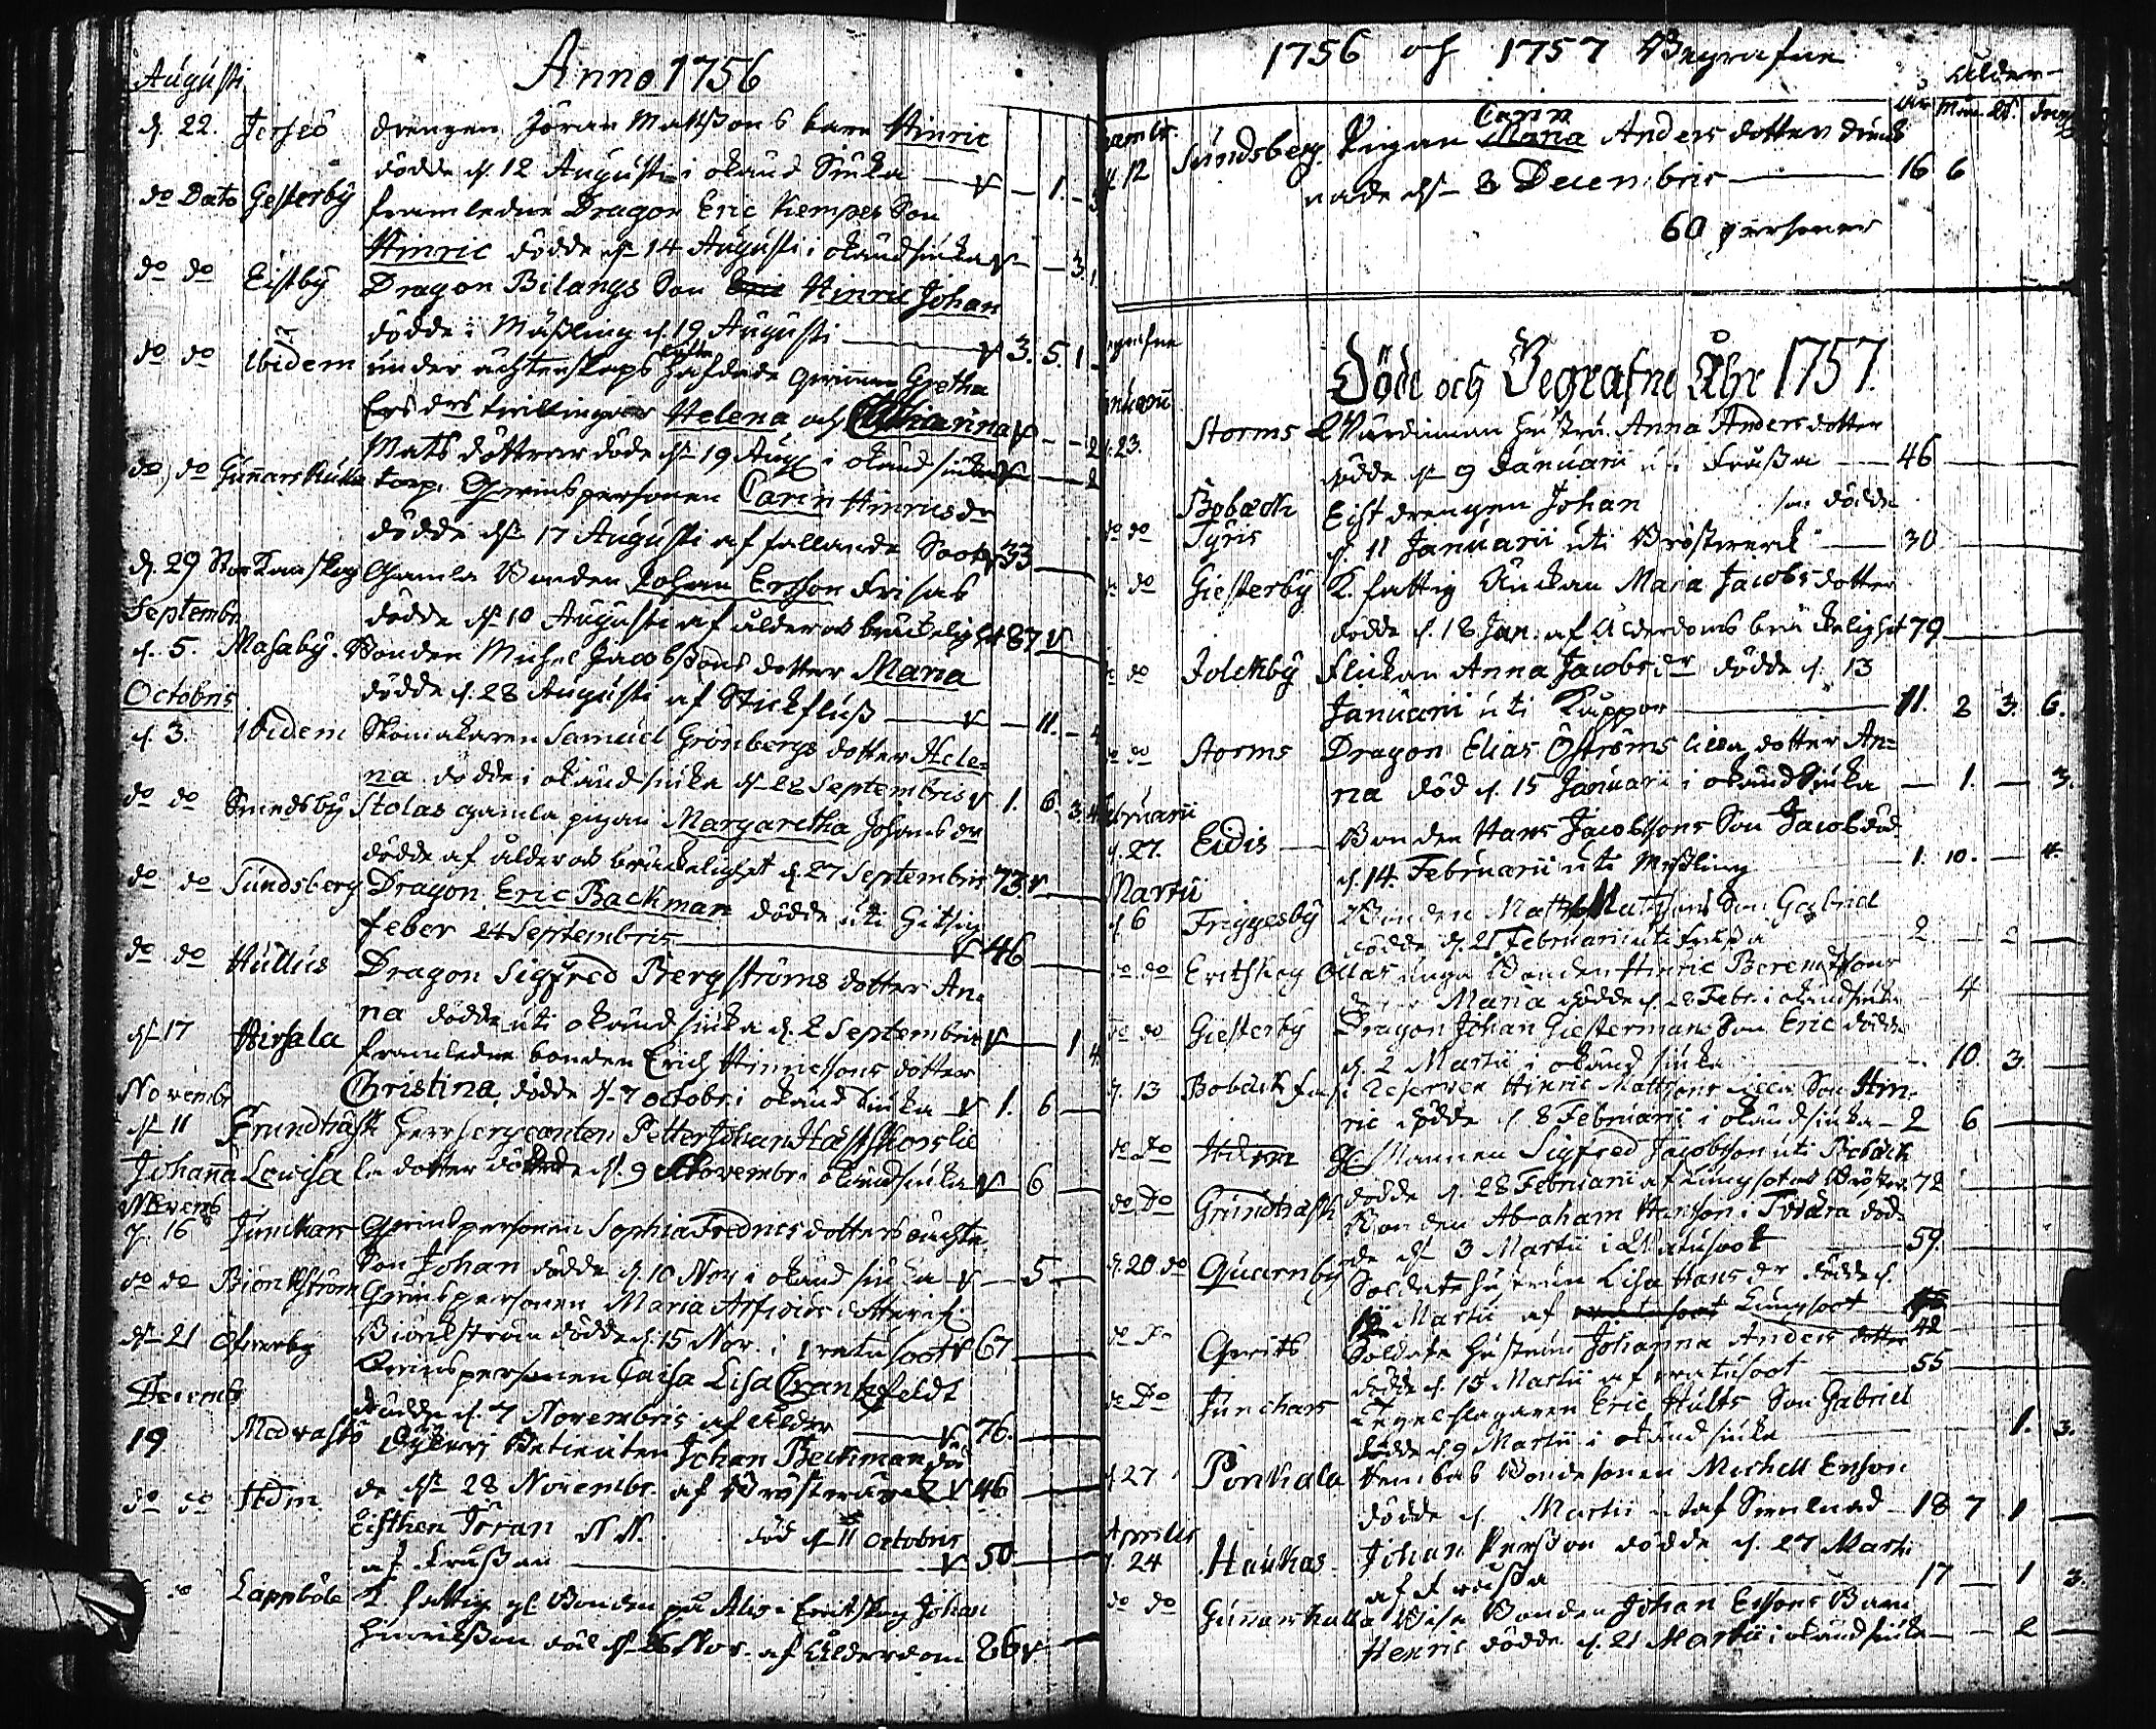 Anno 1756
Augusti
d. 22. Jerseö drengen Jöran Mattssons barn Hinric
dödde d. 12 Augusti i okänd Siuka 1.
do Dato Gesterby framledne Dragon Eric Kempes Son
Hinric dödde d. 14 Augusti i okänd siuka 3.
do do Eistby Dragon Bilangs Son Hinric Johan
dödde i Mässling d. 19 Augusti 3. 5. 1
do do Ibidem under ächtenskaps häfdade qwinnan Gretha
Ers drs twillingar Helena och Catharina
Mats döttrar döde d. 19 Aug i okänd siuka 2
do do Gunnarskulla torp. Qwinspersonen Carin Hinricsdr
dödde d. 17 Augusti af fallande Soot 33
d. 29 Stor Kanskog Gamla Bonden Johan Ersson Frisas
dödde d. 10 Augusti af ålderos bräckelighet 87
Septembr
d. 5. Masaby. Bonden Michel Jacobssons dotter Maria
dödde d. 28 Augusti af Stickfluss 11.
Octobris
d. 3. Ibidem Skomakaren Samuel Grönbergs dotter Hele=
na dödde i okänd siuka d. 28 Septembris 1. 6. 3. 4
do do Smedsby Stolas gamla pigan Margaretha Johans dr
dödde af ålderos bräckelighet d. 27 Septembris 73.
do do Sundsberg Dragon Eric Backman dödde uti Hitsig
feber 24 Septembris 46
do do Hullus Dragon Sigfred Bergströms dotter An=
na dödde uti okänd siuka d. 2 Septembris 1 4
d. 17 Hirsala framledne bonden Erich Hinricssons dotter
Christina, dödde d. 7 octobr i okänd siuka 1. 6
Novembr
d. 11 Grundträsk Herr sergeanten Petter Johan Hästskos lil
Johanna Lovisa la dotter dödde d. 9 Novembr i okänd siuka 6
Novemb
d. 16 Junckars Qwinspersonen Sophia Fredrics dotters oächta
Son Johan dödde d. 10 Nov i okänd siuka 5
do do Biörckström Qwinspersonen Maria Arfvids dotter i
Biörckström dödde d. 15 Nov. i rötusoot 67
d. 21 Öfverby Qwinspersonen Caisa Lisa Crantzfeldt
dödde d. 7 Novembris af ålder 76.
Decemb
19 Medvastö Betienten Johan Beckman död
de d. 28 Novembr. af Bröstwärck 46
do do Idm Eisthen Jöran N N. död d. 11 octobris
af frussan 50
do Lappböle K. fattig gl Bonden på Alis i Evitskog Johan
Hinricksson död d. 26 Nov. af Ålderdom 86
1756 och 1757 Begrafne
Ålder
Åhr Mån. dagar
cembr. Carin
d. 12 Sundsberg Pigan Maria Anders dotter drunk
nade d. 3 Decembris 16 6
60 personer
Döde och Begrafne Åhr 1757.
egrafne
nuarii
23. Storms Nämdeman hustru Anna Anders dotter
dödde d. 9 Januarii uti Frussa 46
do do Bobäck Tyris Eist drengen Johan som dödde
d. 11 Januarii uti Bröstwerck 30
do Giesterby K. fattig Änckan Maria Jacobs dotter
dödde d. 18 Jan. af Ålderdoms bräckelighet 79
do Jolckby Flickan Anna Jacobs dr dödde d. 13
Januarii uti Kuppor 11. 2 3. 6.
do do Storms Dragon Elias Öströms lilla dotter An=
na död d. 15 Januarii i okänd Siuka 1. 3.
bruarii
d. 27. Eidis Bonden Hans Jacobssons Son Jacob död
d. 14. Februarii uti Mässling 1. 10. 4.
Martii
d. 6 Friggesby Bonden Matts Mattssons Son Gabriel
dödde d. 21 Februarii uti frussa 2. 2
do do Evitskog Ollas unga Bonden Hinric Beremssons
dotter Maria dödde d. 28 Febr. i okänd siuka 4
do do Giesterby Dragon Johan Giestermans Son Eric dödde
d. 2 Martii i okänd siuka 10. 3.
d. 13 Bobäck Reserven Hinric Mattssons lilla Son Hin=
ric dödde d. 8 Februarii i okänd siuka 2 6
do Do Idem Gl Mannen Sigfred Jacobsson uti Bobäck
dödde d. 28 Februarii af Lungsot o Bröstw. 72
do Do Grundträsk Bonden Abraham Hansson i Tordera död
de d. 3 Martii i Rötusoot 59.
d. 20 do Quarnby Soldats hustrun Lisa Hans dr dödde d.
12 Martii af Lungsoot 42
do Do Gerits Soldats hustrun Johanna Anders dotter
dödde d. 15 Martii af rötusoot 55
do Do Junckars Tegelslagaren Eric Hults Son Gabriel
dödde d. 9 Martii i okänd siuka 1. 3.
d. 27 Porkala Hembas Bondesonen Michell Ersson
dödde d. Martii 18 7 1
Aprilis
d. 24 Haukas Johan Persson dödde d. 27 Martii
af frussa 17 1 3.
do do Gunnarskulla Wese Bonden Johan Erssons Barn
Henric dödde d. 21 Martii i okänd siuka 2